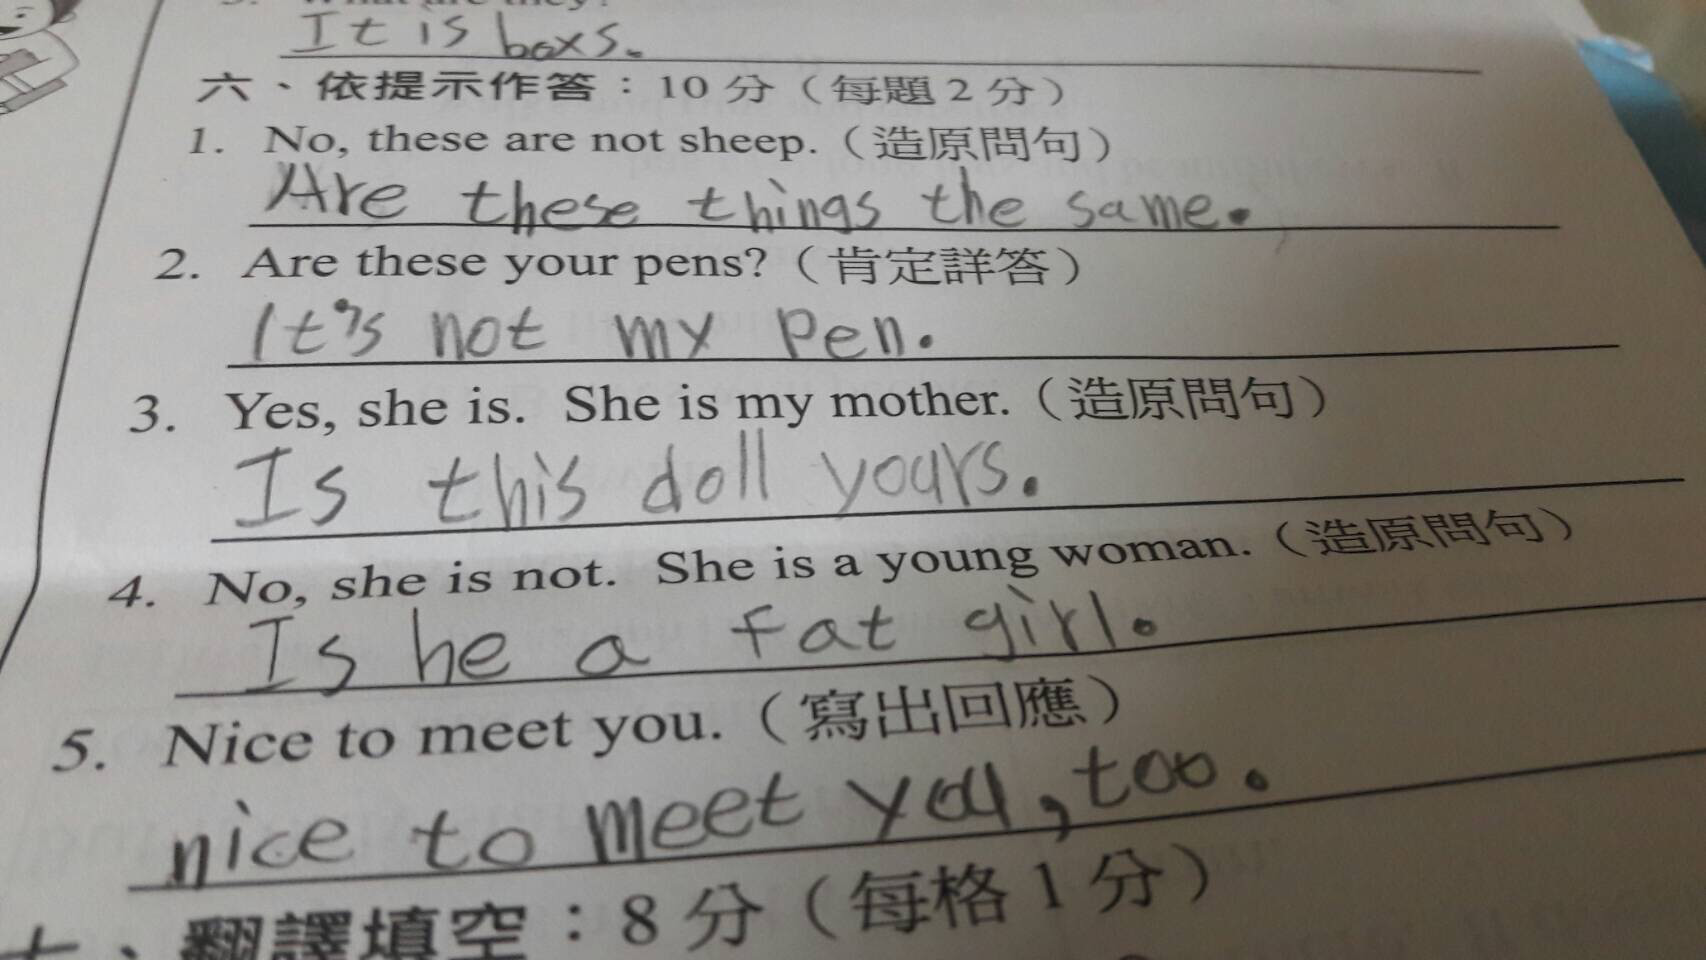 It is boxs.
六、依提示作答：10 分（每題 2 分）
1. No, these are not sheep.（造原問句）
Are these things the same.
2. Are these your pens?（肯定詳答）
It's not my pen.
3. Yes, she is. She is my mother.（造原問句）
Is this doll yours.
4. No, she is not. She is a young woman.（造原問句）
Is he a fat girl.
5. Nice to meet you.（寫出回應）
nice to meet you, too.
七、翻譯填空：8 分（每格 1 分）